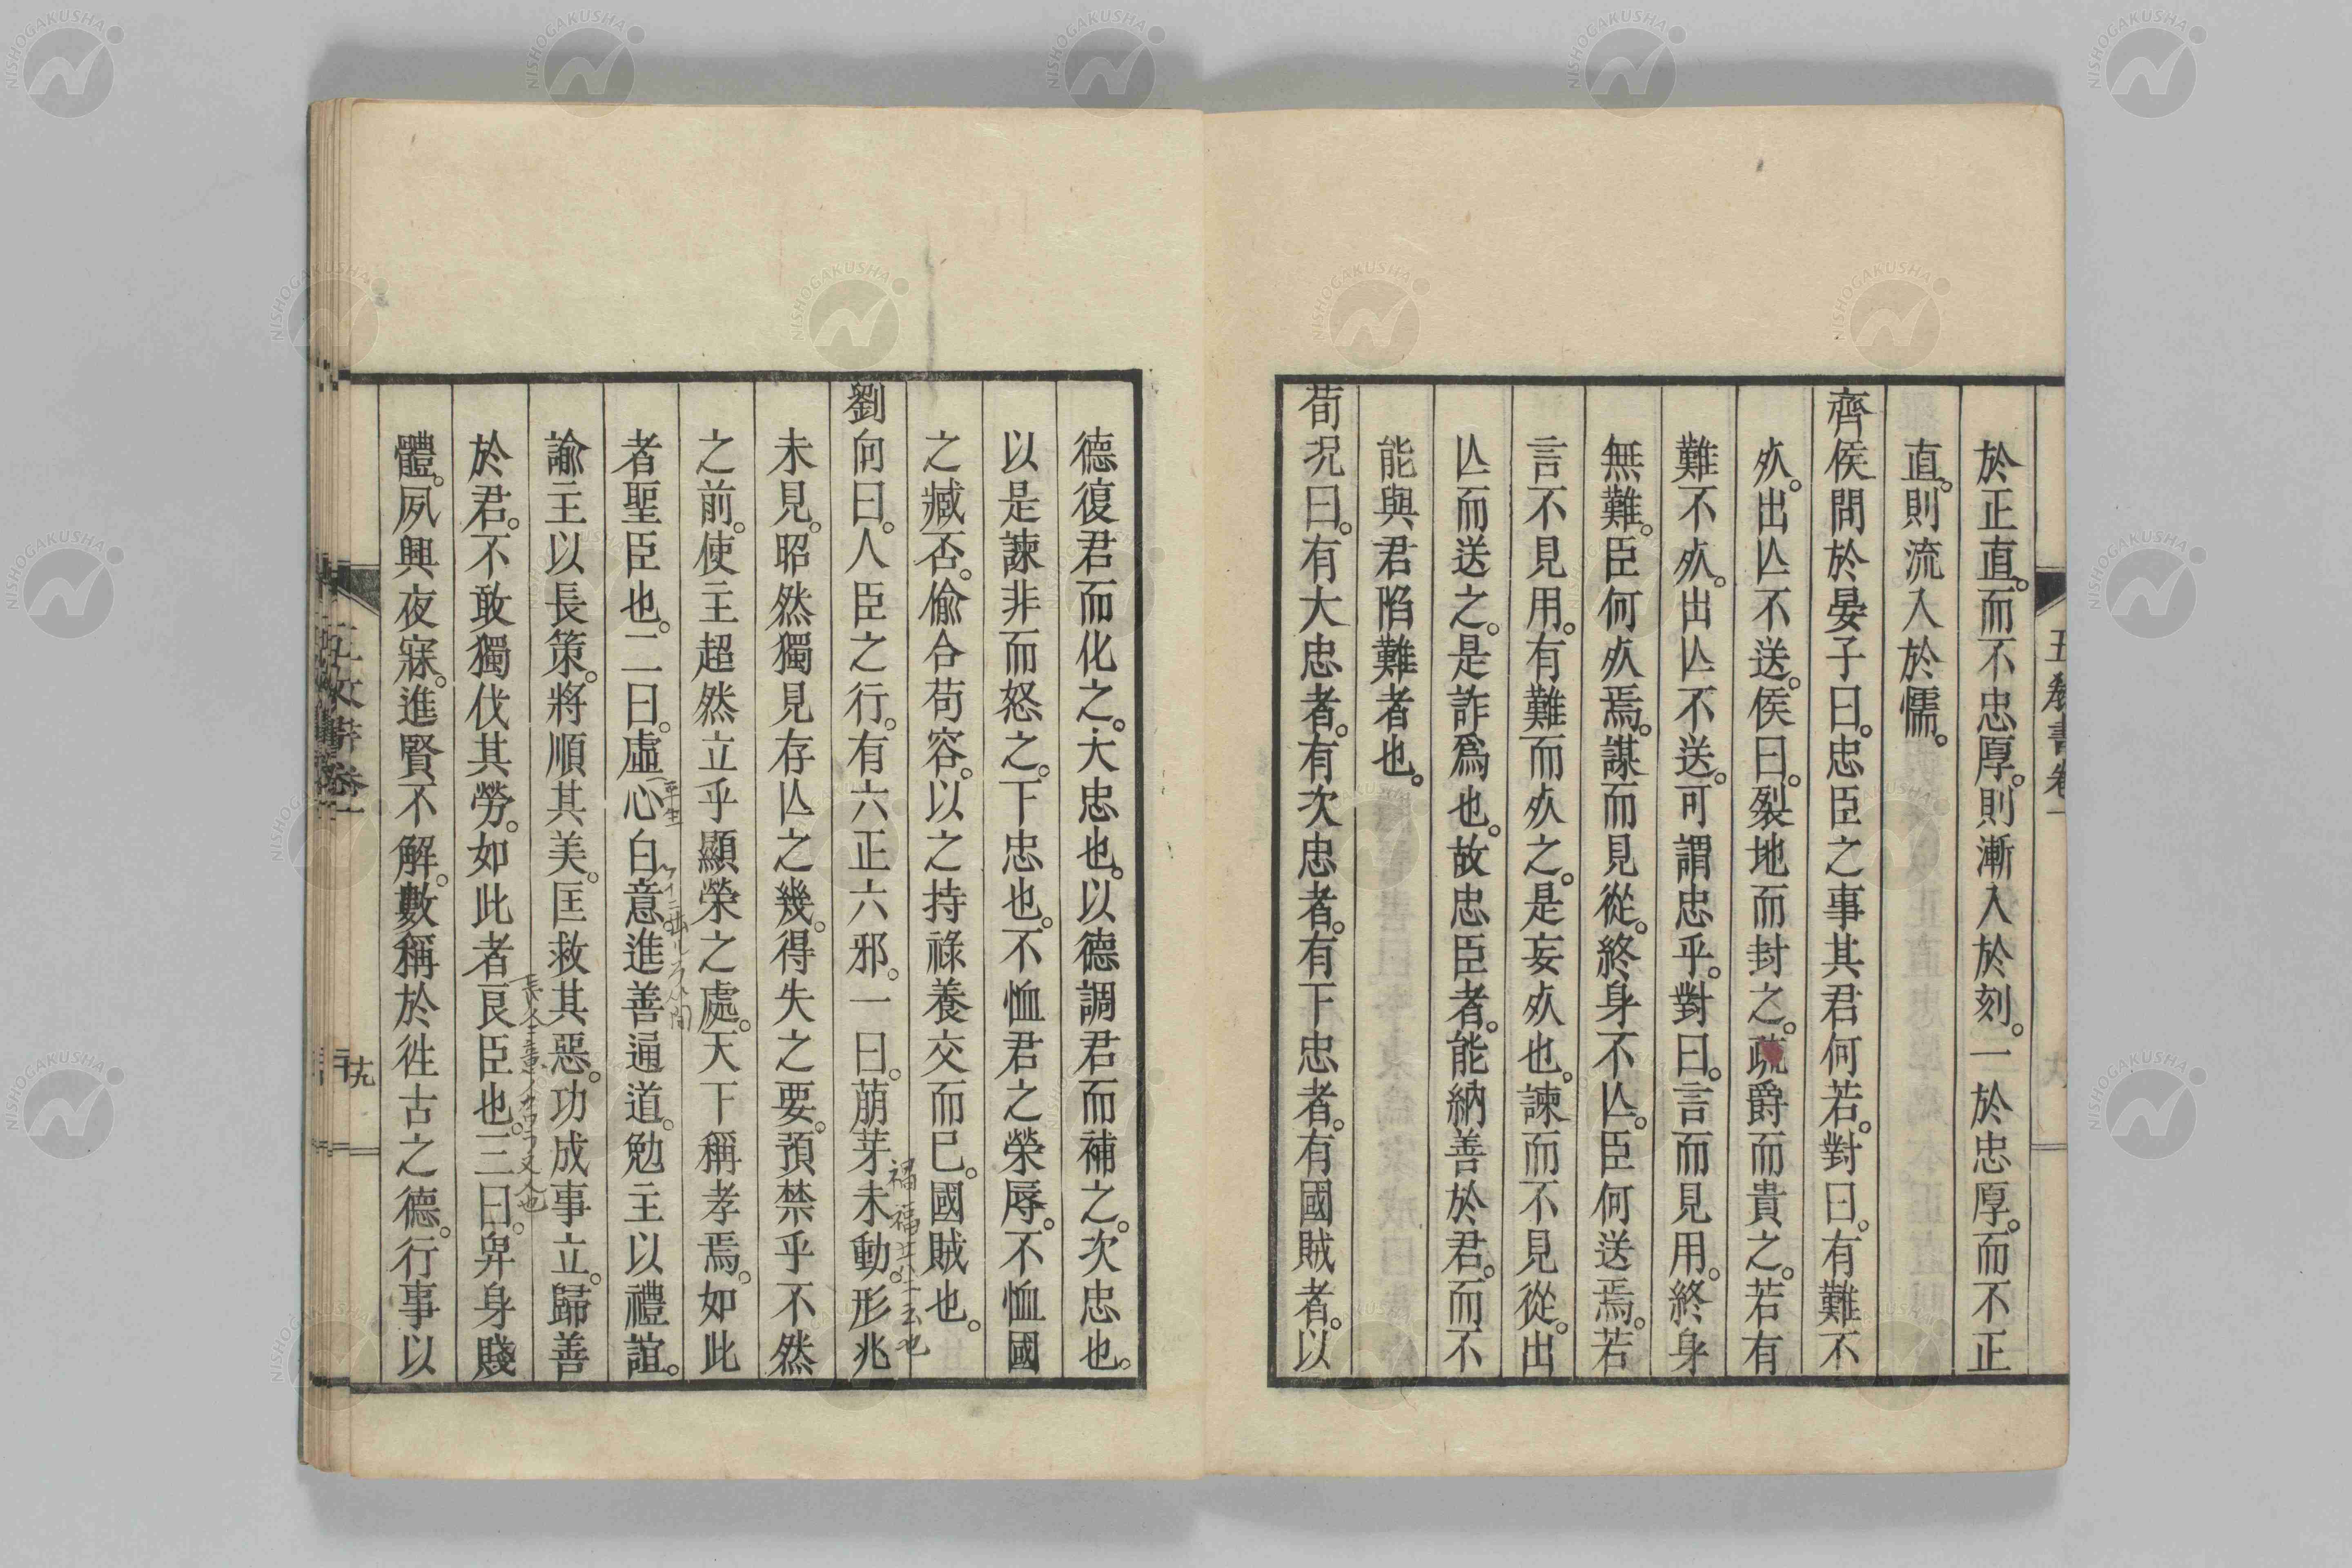 於正直。而不忠厚。則漸入於刻。一於忠厚。而不正
直。則流入於懦。
齊侯問於晏子曰。忠臣之事其君何若。對曰。有難不
死。出亾不送。侯曰。裂地而封之。疏爵而貴之。若有
難不死。出亾不送。可謂忠乎。對曰。言而見用。終身
無難。臣何死焉。謀而見從。終身不亾。臣何送焉。若
言不見用。有難而死之。是妄死也。諫而不見從。出
亾而送之。是詐爲也。故忠臣者。能納善於君。而不
能與君陷難者也。
荀况曰。有大忠者。有次忠者。有下忠者。有國賊者。以
德復君而化之。大忠也。以德調君而補之。次忠也。
以是諫非而怒之。下忠也。不恤君之榮辱。不恤國
之臧否。偷合苟容。以之持祿養交而已。國賊也。
劉向曰。人臣之行。有六正六邪。一曰。萠芽未動。形兆
未見。昭然獨見存亾之幾。得失之要。預禁乎不然
之前。使主超然立乎顯榮之處。天下稱孝焉。如此
者聖臣也。二曰。虛心白意。進善通道。勉主以禮誼。
諭主以長策。將順其美。匡救其惡。功成事立。歸善
於君。不敢獨伐其勞。如此者良臣也。三曰。畁身賤
體。夙興夜寐。進賢不解。數稱於徃古之德。行事以
五教書卷一
十九
NISHOGAKUSHA